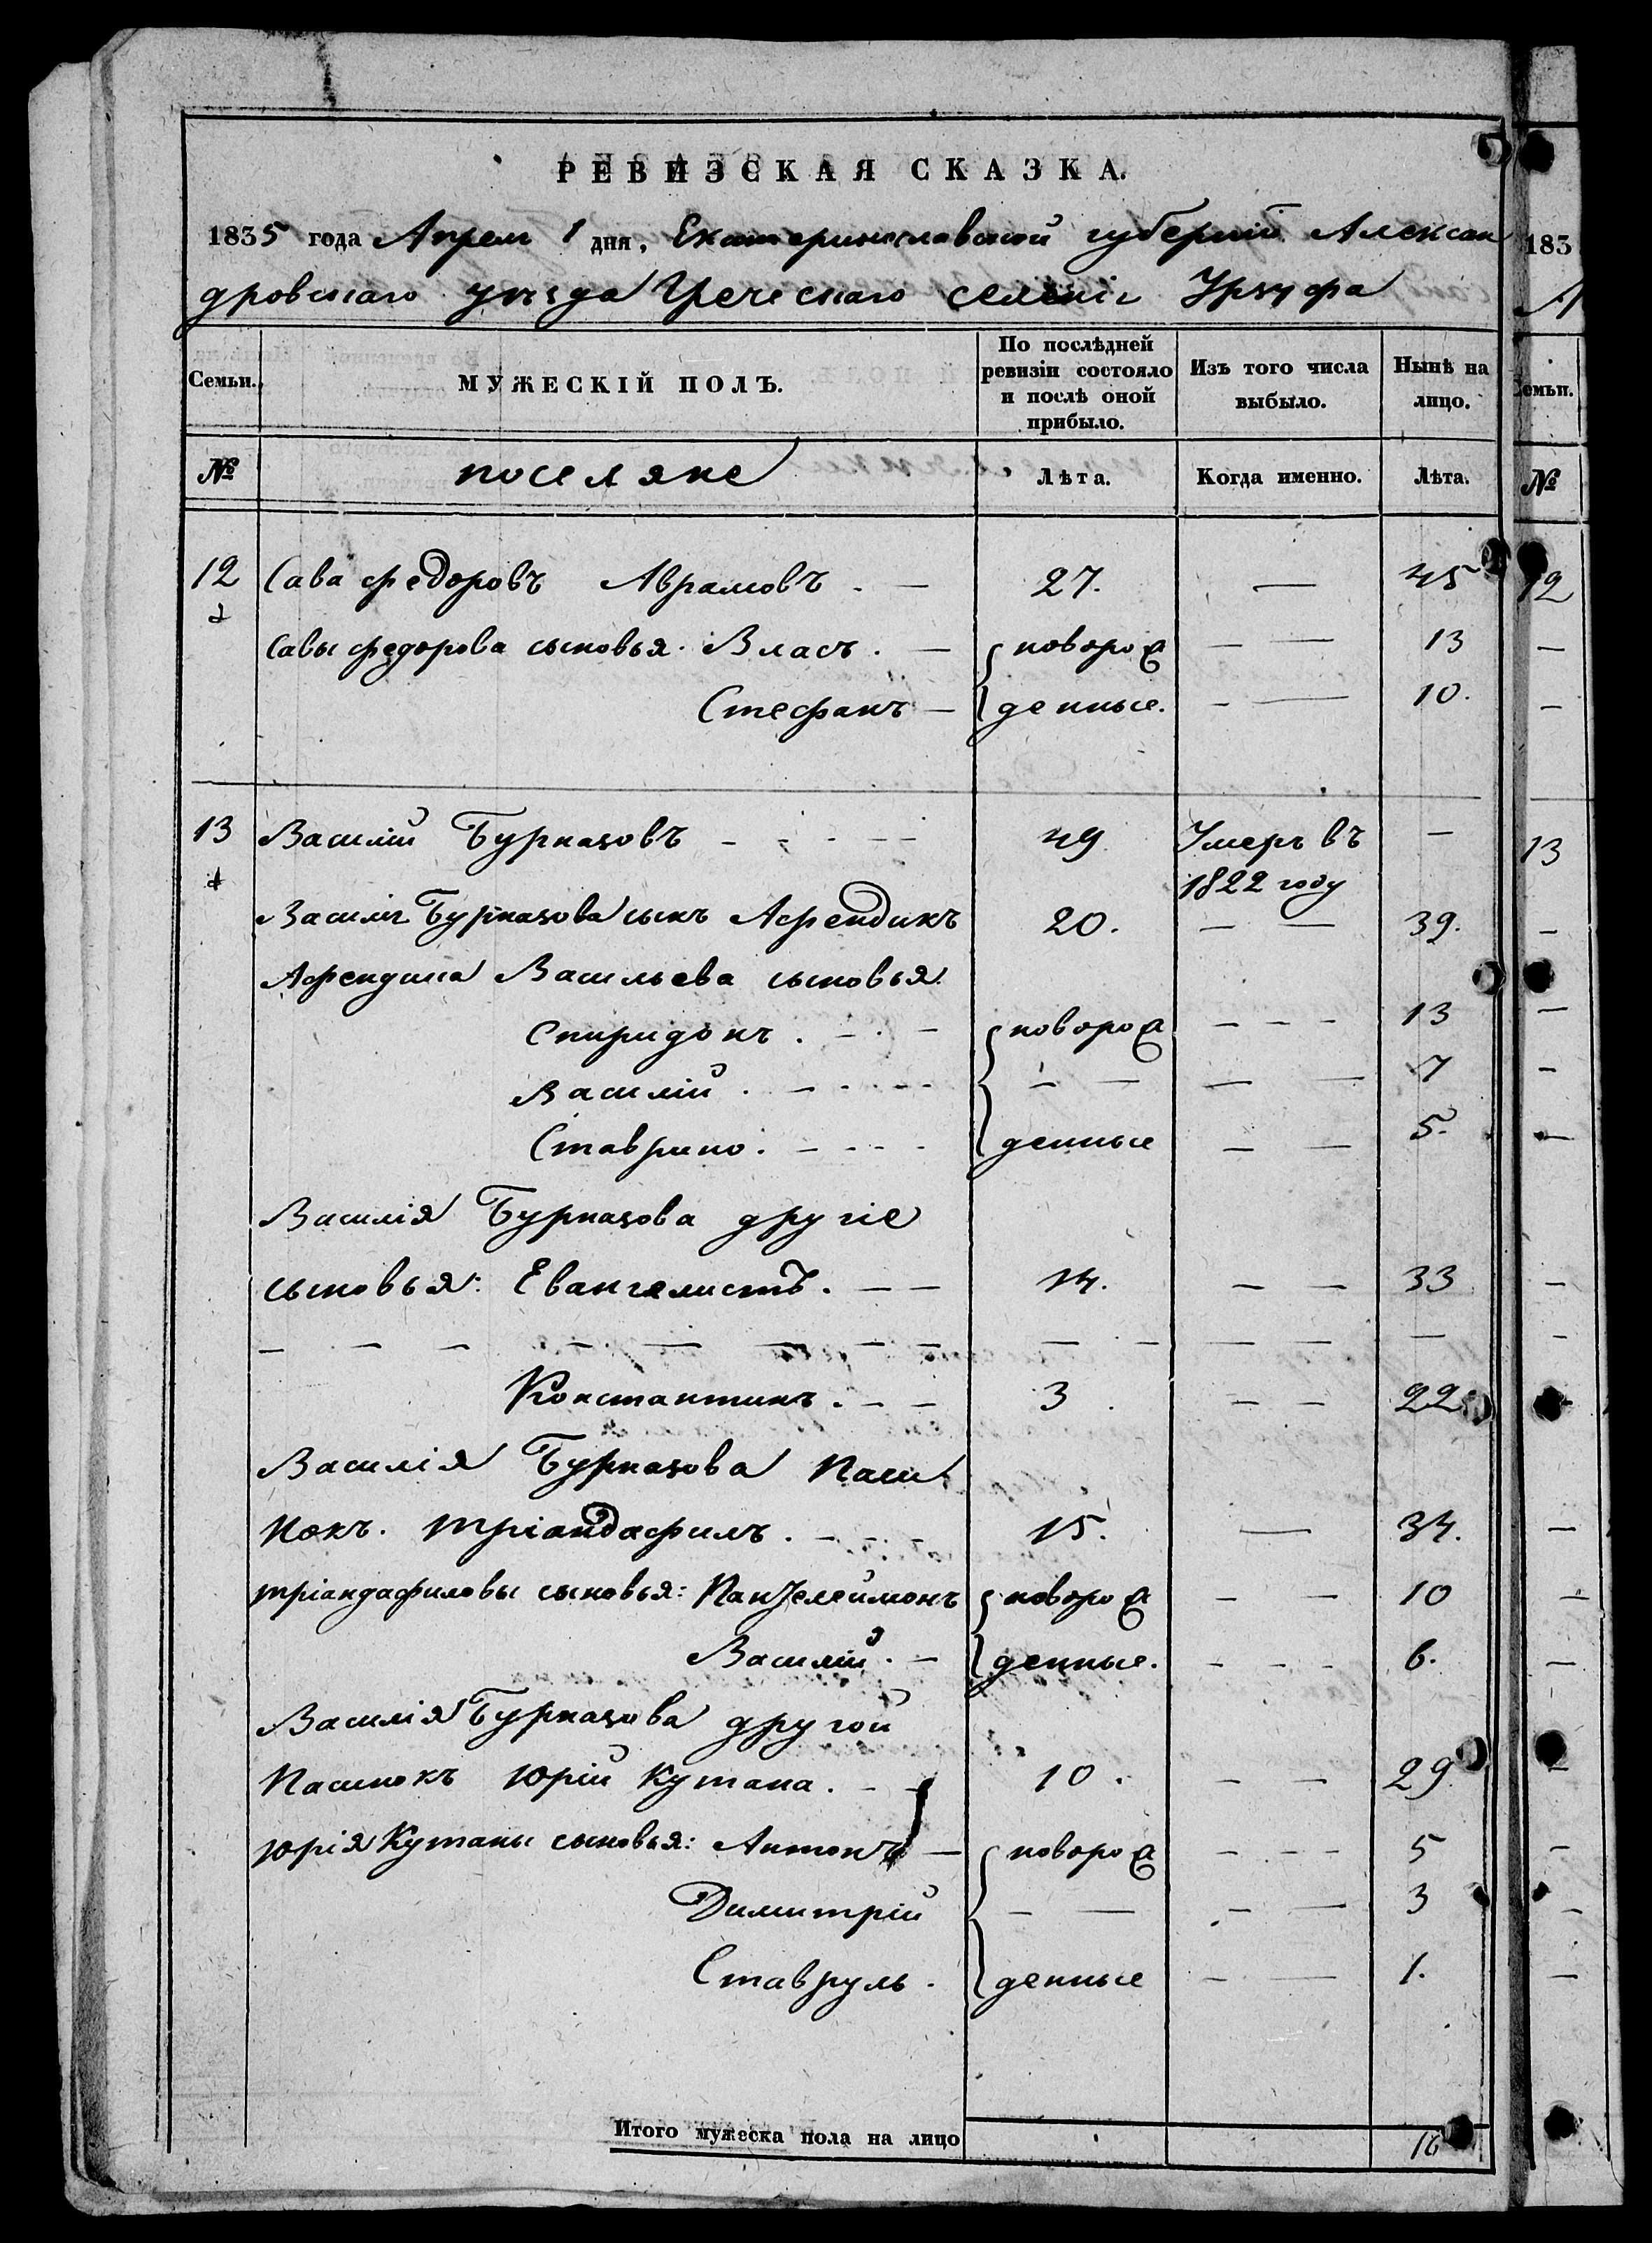 РЕВИЗСКАЯ СКАЗКА.
1835 года Апреля 1 дня, Екатеринославской губерніи Алексан
дровскаго уезда Греческаго селенія Урзуфа
Семьи. МУЖЕСКІЙ ПОЛЪ. По послѣдней ревизіи состояло и послѣ оной прибыло. Изъ того числа выбыло. Нынѣ на лицо.
№ поселяне Лѣта. Когда именно. Лѣта.
12 Сава Федоровъ Аврамовъ. — 27. — 45
Савы Федорова сыновья. Власъ. — новорож — — 13
Стефанъ — денные. — — 10.
13 Василій Бурназовъ - - - — 49 Умеръ въ —
1822 году
Василія Бурназова сынъ Афендикъ 20. — — 39.
Афендика Васильева сыновья
Спиридонъ. - - — новорож — — — 13
Василій. - - - - — — — — 7
Ставрино. - - - - денные — — 5.
Василія Бурназова другіе
сыновья: Евангелистъ. — — 14. — — 33
— — — — — — — — — — — — —
Константинъ. - — 3 — — 22
Василія Бурназова пасы
нокъ. Тріандафилъ. - - - 15. — 34.
Тріандафиловы сыновья: Пантелеймонъ новорож — — 10
Василій. — денные. — — — 6.
Василія Бурназова другой
пасынокъ Юрій Кутана. - - 10. — — 29
Юрія Кутаны сыновья: Антонъ — новорож — — — 5
Димитрій — — — — 3
Ставруль. денные — — 1.
Итого мужеска пола на лицо 16
183
Семьи.
№
12
13